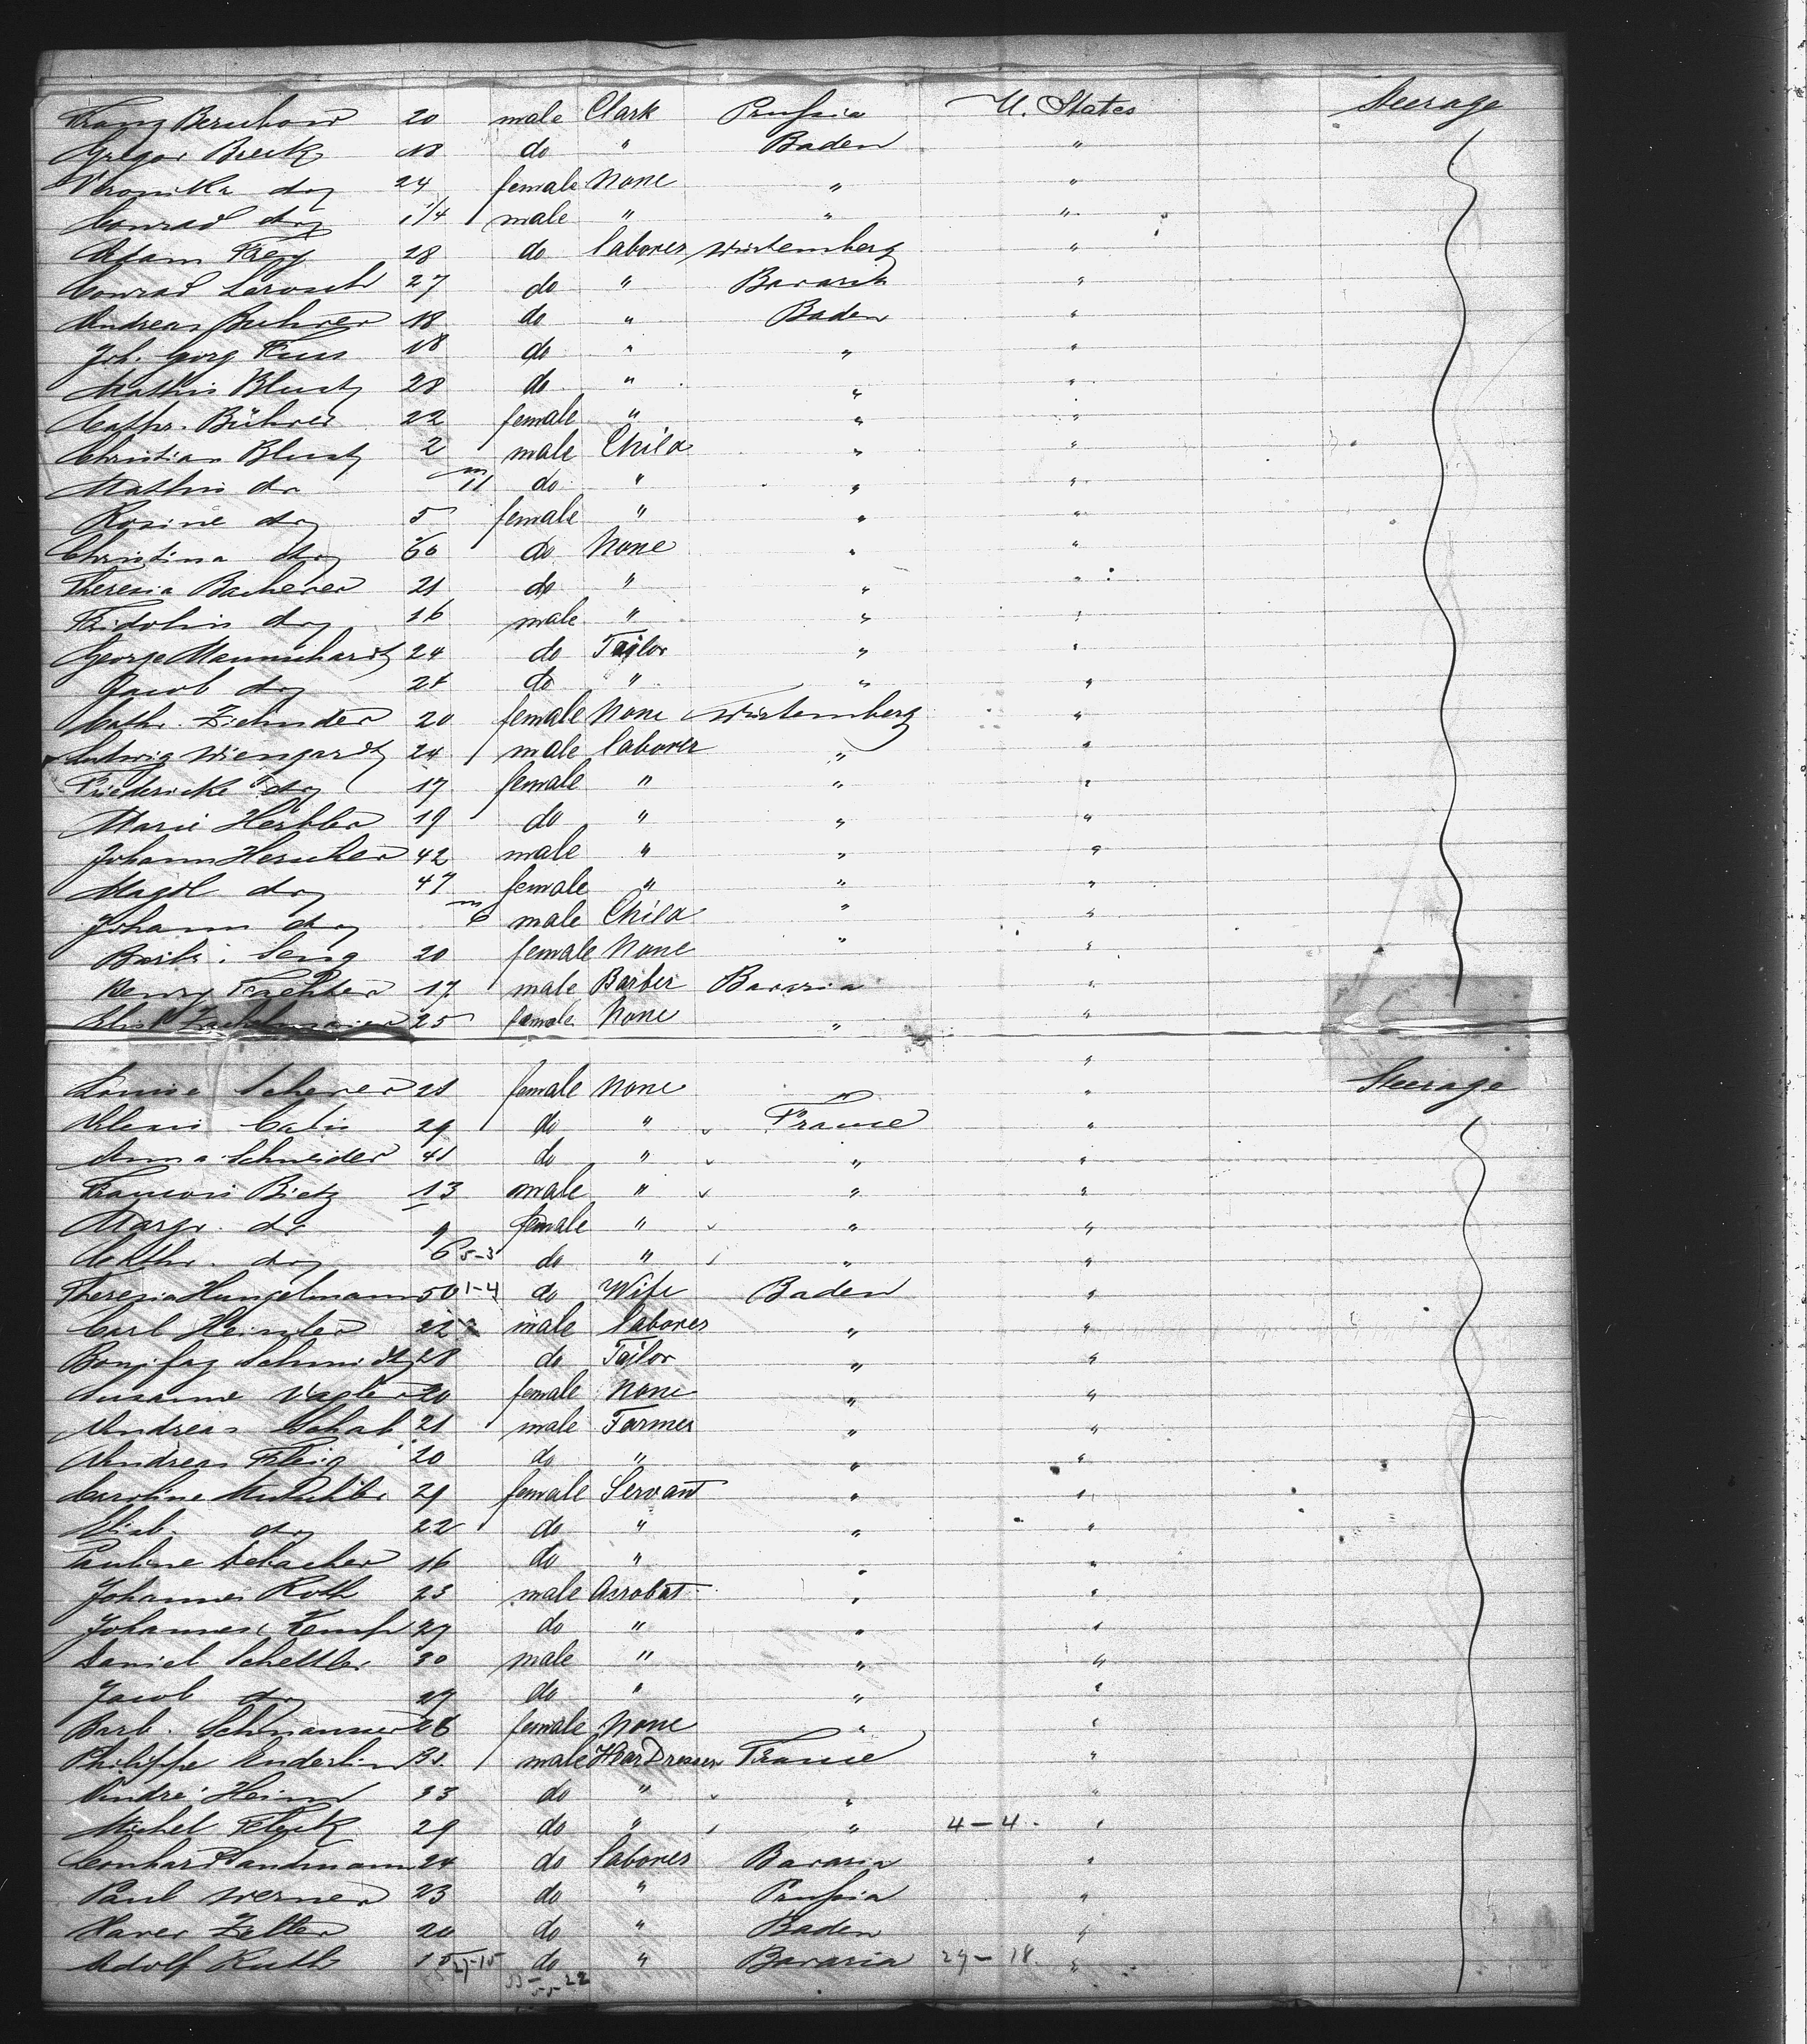 Franz 20 male Clark Prussia U. States Steerage
Gregor Beck 18 do " Baden "
Veronika do 24 female None " "
Conrad do 1 1/4 male " " "
Adam Frey 28 do laborer Würtemberg "
Conrad 27 do " Bavaria "
Andreas Buhrer 18 do " Baden "
Joh. Georg Fuss 18 do " " "
Mathis Blust 28 do " " "
Cathr. Bührer 22 female " " "
Christian Blust 2 male Child " "
Mathis do m 11 do " " "
Rosine do 5 female " " "
Christina do 60 do None " "
Theresia Bacherer 21 do " " "
Fridolin do 16 male " " "
George Maunshardt 24 do Tailor " "
Jacob do do " " "
Cathr. 20 female None Würtemberg "
Ludwig Wiengardt 24 male laborer " "
Friedericke do 17 female " " "
Marie 19 do " " "
Johann 42 male " " "
Magdl do 47 female " " "
Johann do m 6 male Child " "
Barb. 20 female None " "
Henry 17 male Barber Bavaria "
Elis 25 female None " "
"
Louise Scherer 21 female None " " Steerage
29 do " France "
Anna Schneider 41 do " " "
Francois Bietz 13 male " " "
Margr. do 9 female " " "
Cathr. do 6 5-3 do " " "
Theresia Hungelmann 50 1-4 do Wife Baden "
Carl 22 male laborer " "
Bonifaz Schmidt 28 do Tailor " "
Susanne Vogler 20 female None " "
Andreas Schab 21 male Farmer " "
Andreas Fleig 20 do " " "
Caroline 29 female Servant " "
Elisb. do 22 do " " "
Pauline Schacher 16 do " " "
Johannes Roth 23 male Acrobat " "
Johannes Kempf 27 do " " "
Daniel Schettler 30 male " " "
Jacob do 27 do " " "
Barb. 28 female None " "
Philippe Enderlin 31 male HearDresser France "
André Heim 33 do " " "
Michel Fleck 29 do " " 4-4 "
Leonhard Sandmann 24 do laborer Bavaria "
Paul Werner 23 do " Prussia "
Xaver Zeller 20 do " Baden "
Adolf Ruth 15 27-15 do " Bavaria 29-18 "
33- 55-22